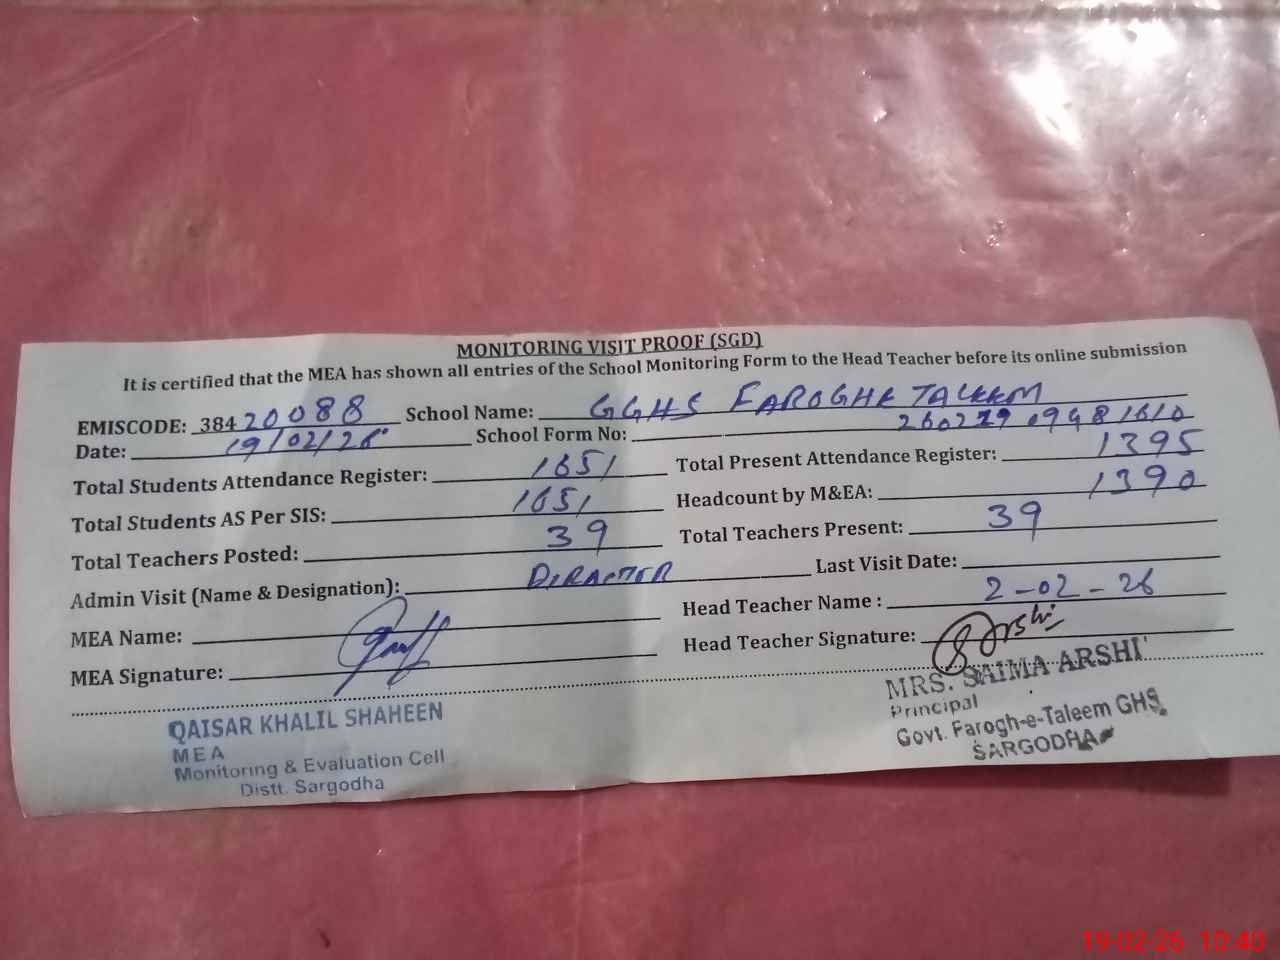 MONITORING VISIT PROOF (SGD)
It is certified that the MEA has shown all entries of the School Monitoring Form to the Head Teacher before its online submission
EMISCODE: 38420088 School Name: GGHS FAROGHE TALEEM
Date: 19/02/26 School Form No: 260219 09481610
Total Students Attendance Register: 1651 Total Present Attendance Register: 1395
Total Students AS Per SIS: 1651 Headcount by M&EA: 1390
Total Teachers Posted: 39 Total Teachers Present: 39
Admin Visit (Name & Designation): DIRACTER Last Visit Date:
MEA Name: Head Teacher Name : 2-02-26
MEA Signature: Head Teacher Signature: SArshi
QAISAR KHALIL SHAHEEN
MEA
Monitoring & Evaluation Cell
Distt. Sargodha
MRS. SAIMA ARSHI
Principal
Govt. Farogh-e-Taleem GHS.
SARGODHA
19-02-26 10:40